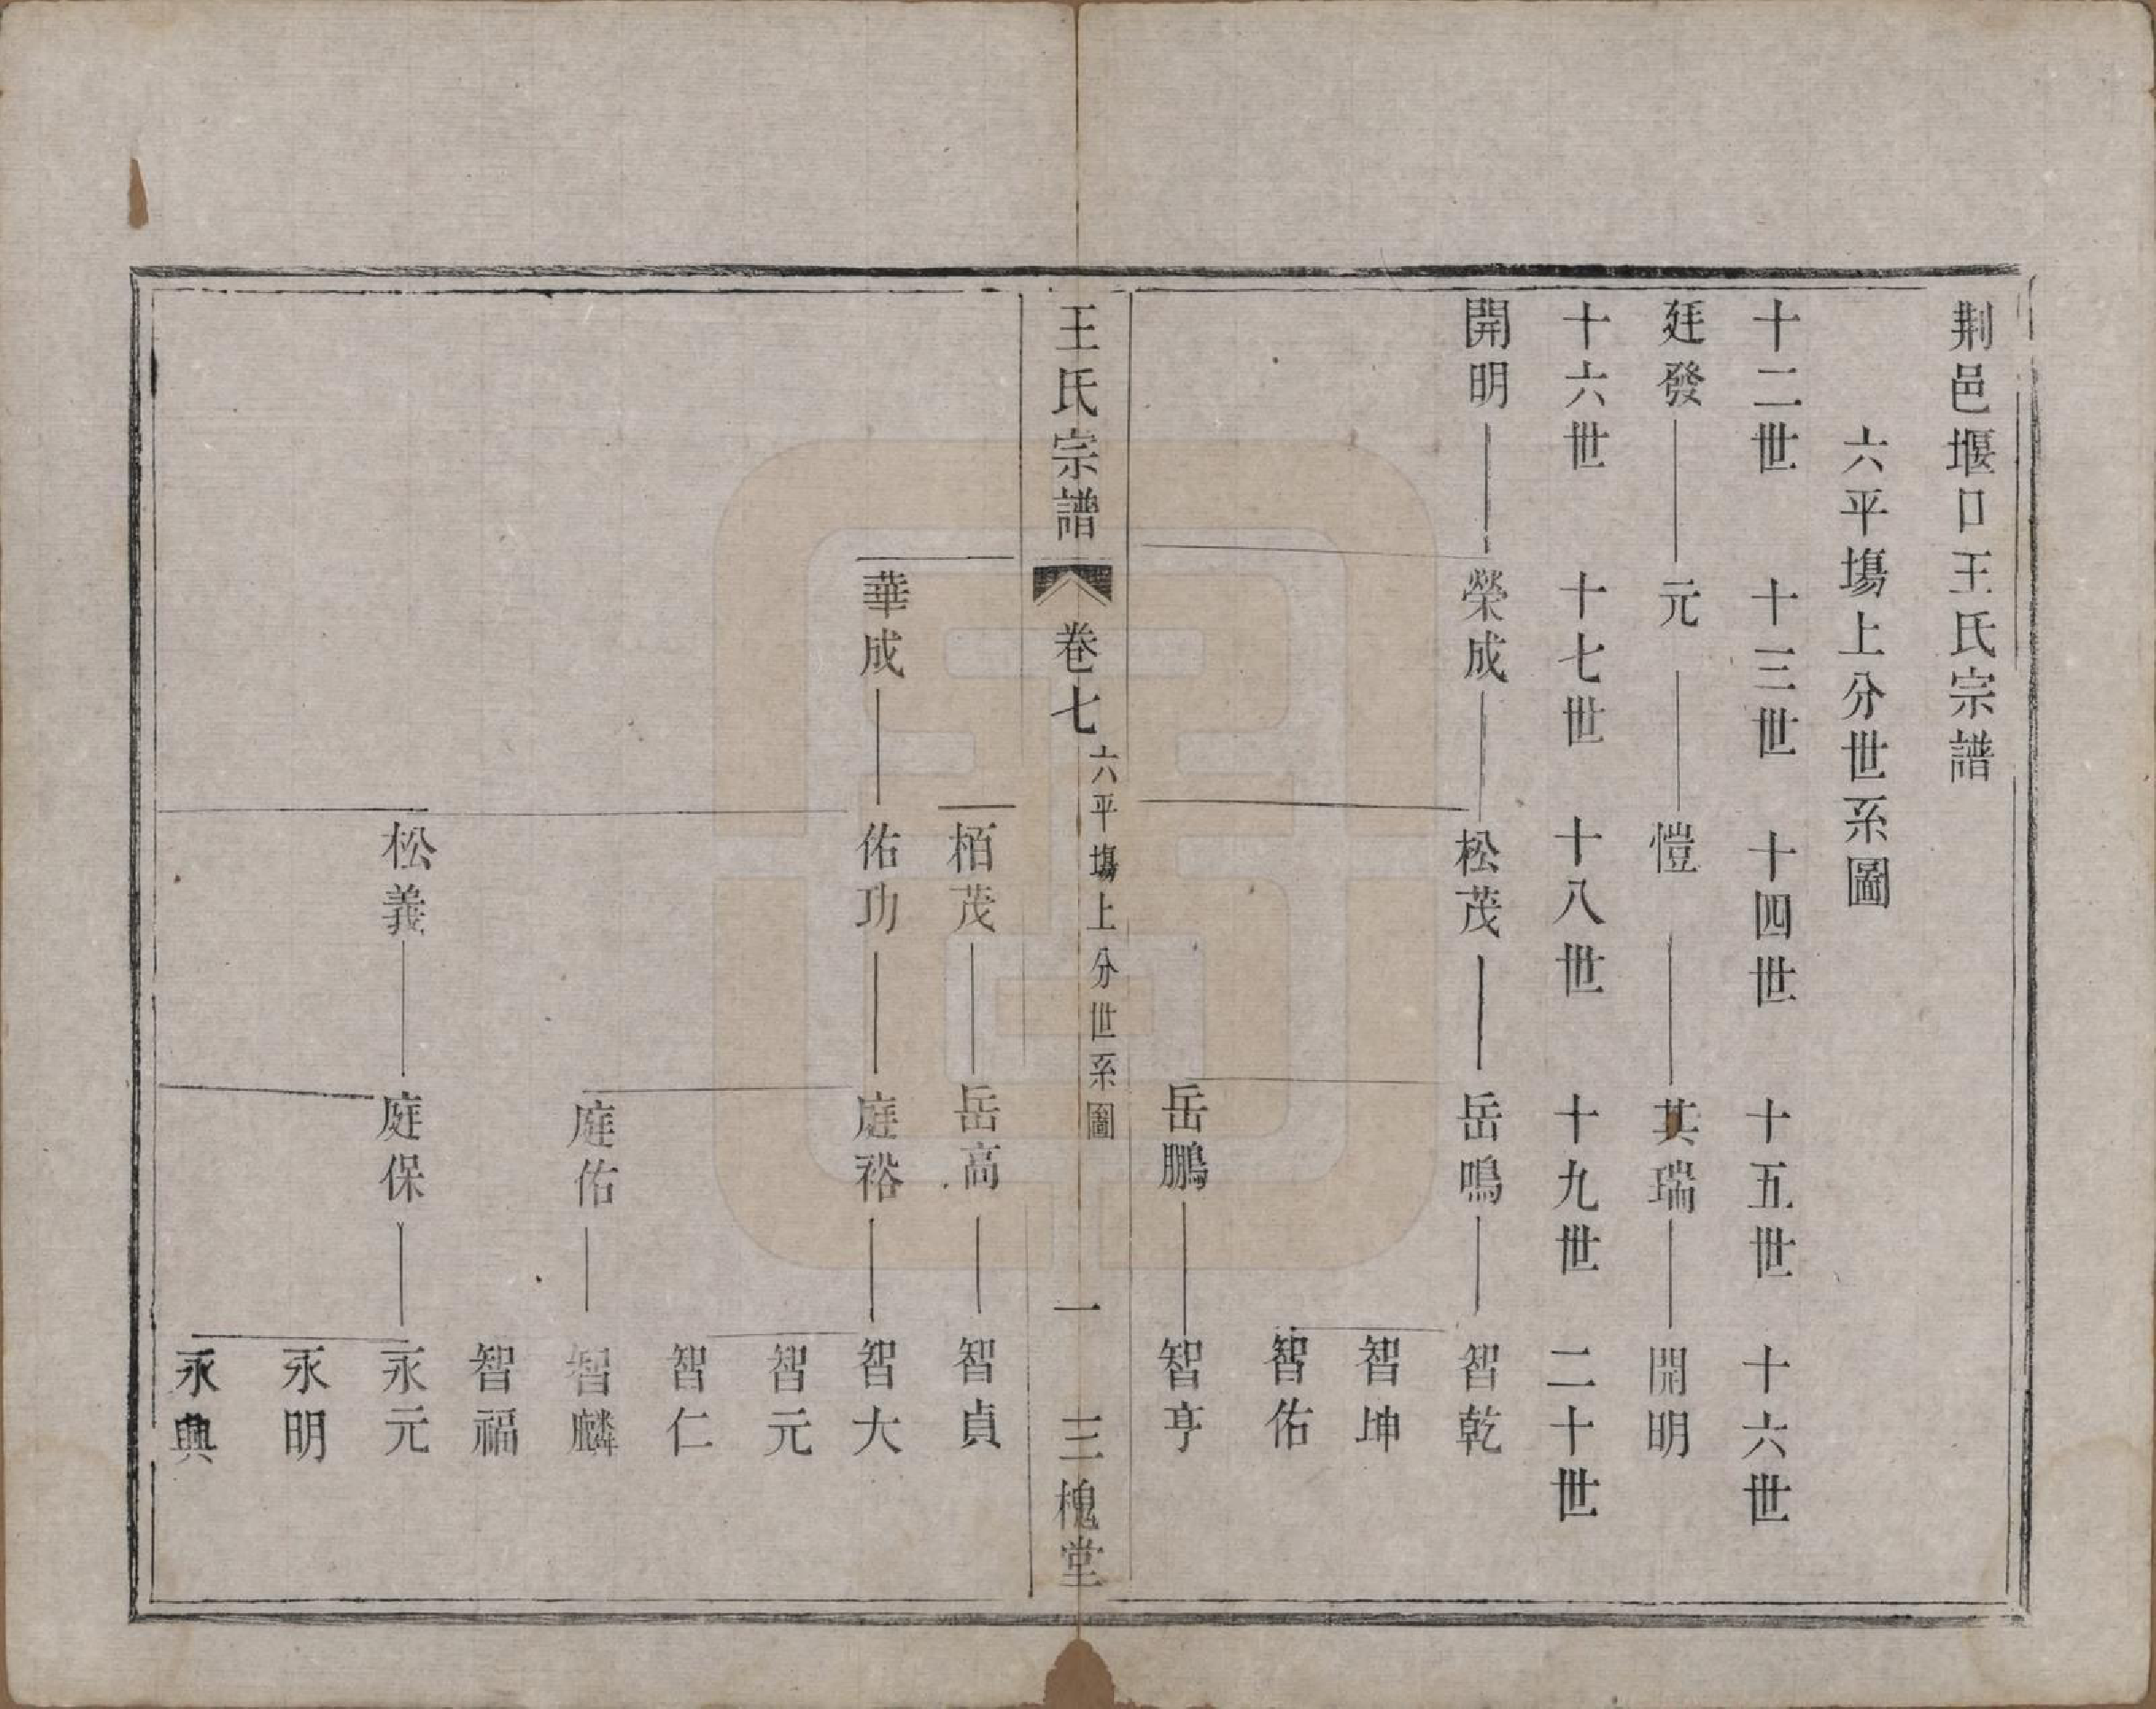 荆邑堰口王氏宗譜
六平塲上分世系圖
十二世 十三世 十四世 十五世 十六世
廷發 元 愷 其瑞 開明
十六世 十七世 十八世 十九世 二十世
開明 榮成 松茂 岳鳴 智乾
智坤
智佑
岳鵬 智亨
王氏宗譜 卷七 六平塲上分世系圖 一 三槐堂
栢茂 岳高 智貞
華成 佑功 庭裕 智大
智元
智仁
庭佑 智麟
智福
松義 庭保 永元
永明
永興